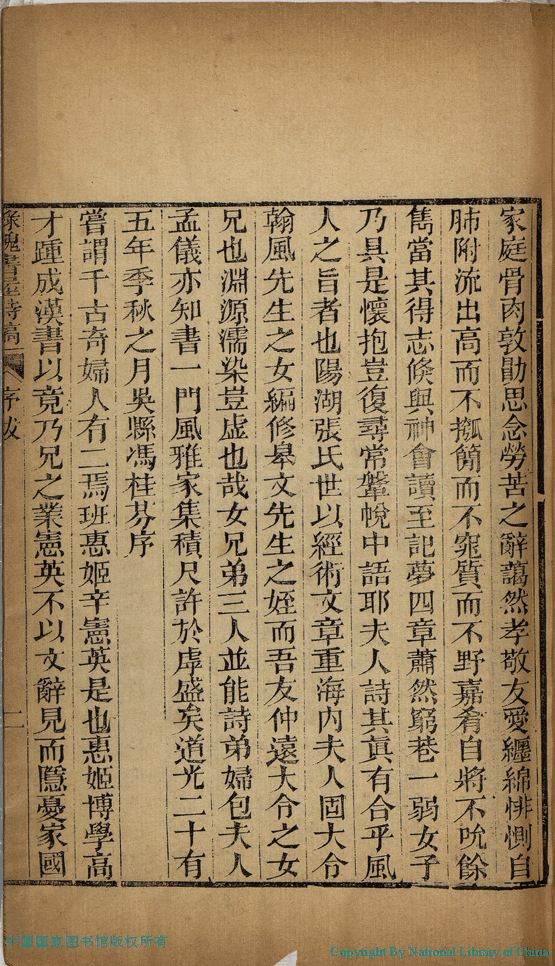 家庭骨肉敦勛思念勞苦之辭藹然孝敬友愛纏綿悱惻自
肺附流出高而不摦簡而不窕質而不野嘉肴自將不吮餘
雋當其得志倏與神會讀至記夢四章蕭然窮巷一弱女子
乃具是懷抱豈復尋常鞶帨中語耶夫人詩其眞有合乎風
人之旨者也陽湖張氏世以經術文章重海內夫人固大令
翰風先生之女編修皋文先生之姪而吾友仲遠大令之女
兄也淵源濡染豈虛也哉女兄弟三人並能詩弟婦包夫人
孟儀亦知書一門風雅家集積尺許於虖盛矣道光二十有
五年季秋之月吳縣馮桂芬序
嘗謂千古奇婦人有二焉班惠姬辛憲英是也惠姬博學高
才踵成漢書以竟乃兄之業憲英不以文辭見而隱憂家國
綠槐書屋詩稿 序跋 二
中国国家图书馆版权所有
Copyright By National Library of China